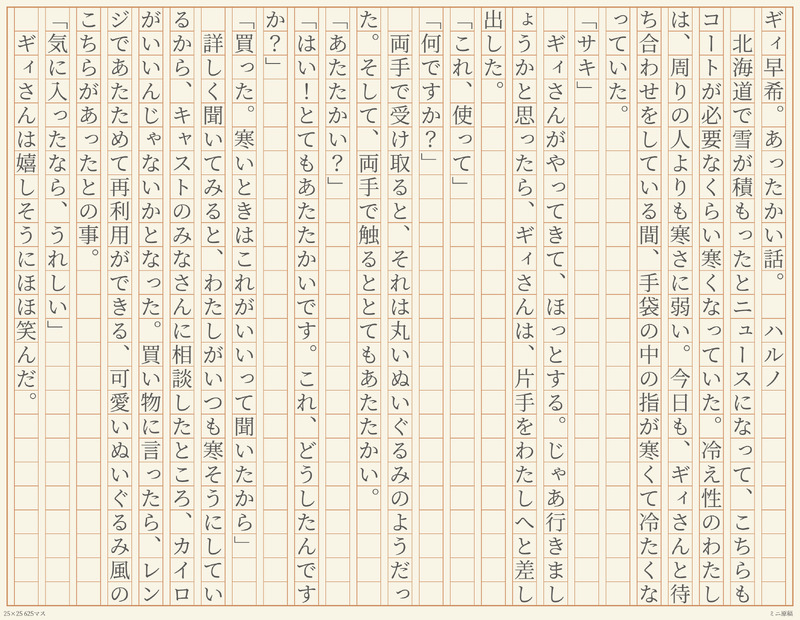 ギィ早希。あったかい話。　ハルノ
　北海道で雪が積もったとニュースになって、こちらも
コートが必要なくらい寒くなっていた。冷え性のわたし
は、周りの人よりも寒さに弱い。今日も、ギィさんと待
ち合わせをしている間、手袋の中の指が寒くて冷たくな
っていた。
「サキ」
　ギィさんがやってきて、ほっとする。じゃあ行きまし
ょうかと思ったら、ギィさんは、片手をわたしへと差し
出した。
「これ、使って」
「何ですか？」
　両手で受け取ると、それは丸いぬいぐるみのようだっ
た。そして、両手で触るととてもあたたかい。
「あたたかい？」
「はい！とてもあたたかいです。これ、どうしたんです
か？」
「買った。寒いときはこれがいいって聞いたから」
　詳しく聞いてみると、わたしがいつも寒そうにしてい
るから、キャストのみなさんに相談したところ、カイロ
がいいんじゃないかとなった。買い物に言ったら、レン
ジであたためて再利用ができる、可愛いぬいぐるみ風の
こちらがあったとの事。
「気に入ったなら、うれしい」
　ギィさんは嬉しそうにほほ笑んだ。
25×25 625マス
ミニ原稿